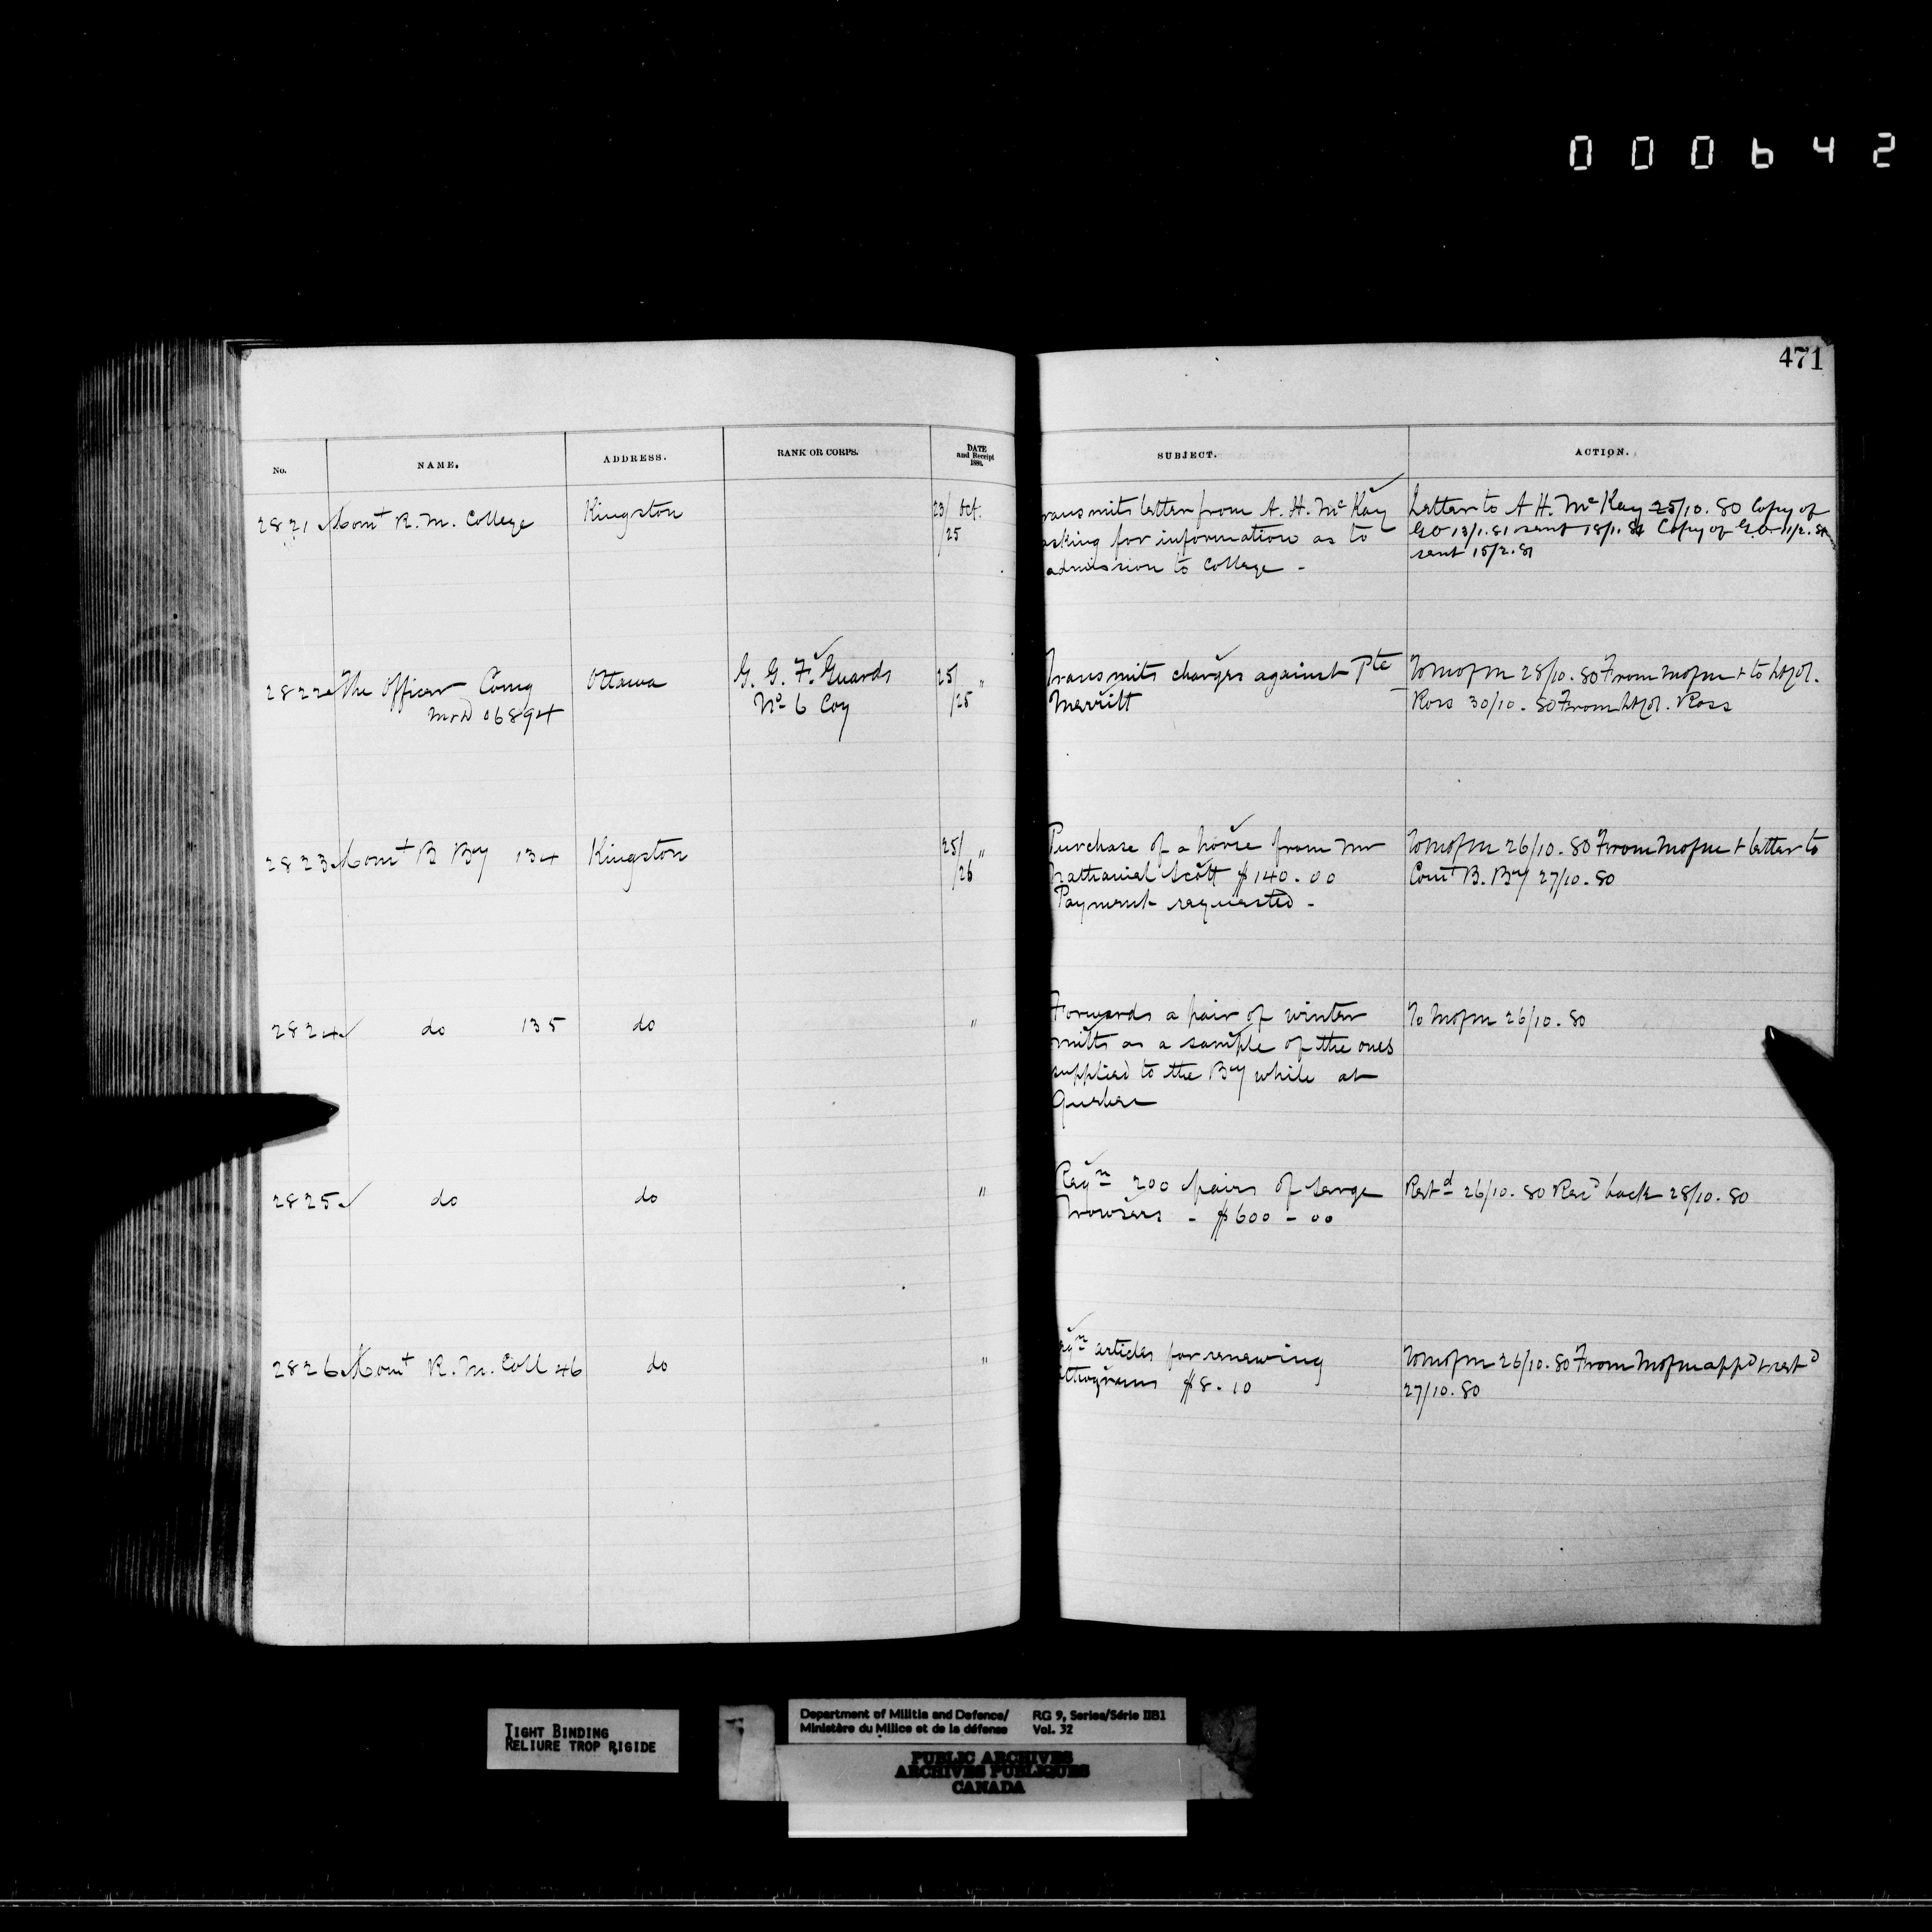 000642
471
No.
NAME.
ADDRESS.
RANK OR CORPS.
DATE
and Receipt
1880.
SUBJECT.
ACTION.
2821 Comt R. M. College Kingston 23/ Oct. /25
Transmits letter from A. H. McKay
asking for information as to
admission to College -
Letter to A H. McKay 25/10. 80 Copy of
GO 13/1.81 sent 18/1.81 Copy of G.O. 11/2.81
sent 15/2.81
2822 The Officer Comg Ottawa G. G. F. Guards 25/ /25 "
06894 No 6 Coy
Transmits charges against Pte
Merritt
To MofM 28/10. 80 From MofM & to Lt Col.
Ross 30/10. 80 From Lt Col. Ross
2823 Comt B Bty 134 Kingston 25/ /26 "
Purchase of a horse from Mr
Nathanial Scott $140.00
Payment requested -
To MofM 26/10. 80 From MofM & letter to
Comt B. Bty 27/10. 80
2824 do 135 do "
Forwards a pair of winter
mitts as a sample of the ones
supplied to the Bty while at
Quebec
To MofM 26/10. 80
2825 do do "
Reqn 200 pairs of serge
Trowsers - $600-00
Restd 26/10. 80 Recd back 28/10. 80
2826 Comt R. M. Coll 46 do "
Reqn articles for renewing
$8.10
To MofM 26/10. 80 From MofM appd & restd
27/10. 80
TIGHT BINDING
RELIURE TROP RIGIDE
Department of Militia and Defence/
Ministère du Milice et de la défense
RG 9, Series/Série IIB1
Vol. 32
PUBLIC ARCHIVES
ARCHIVES PUBLIQUES
CANADA